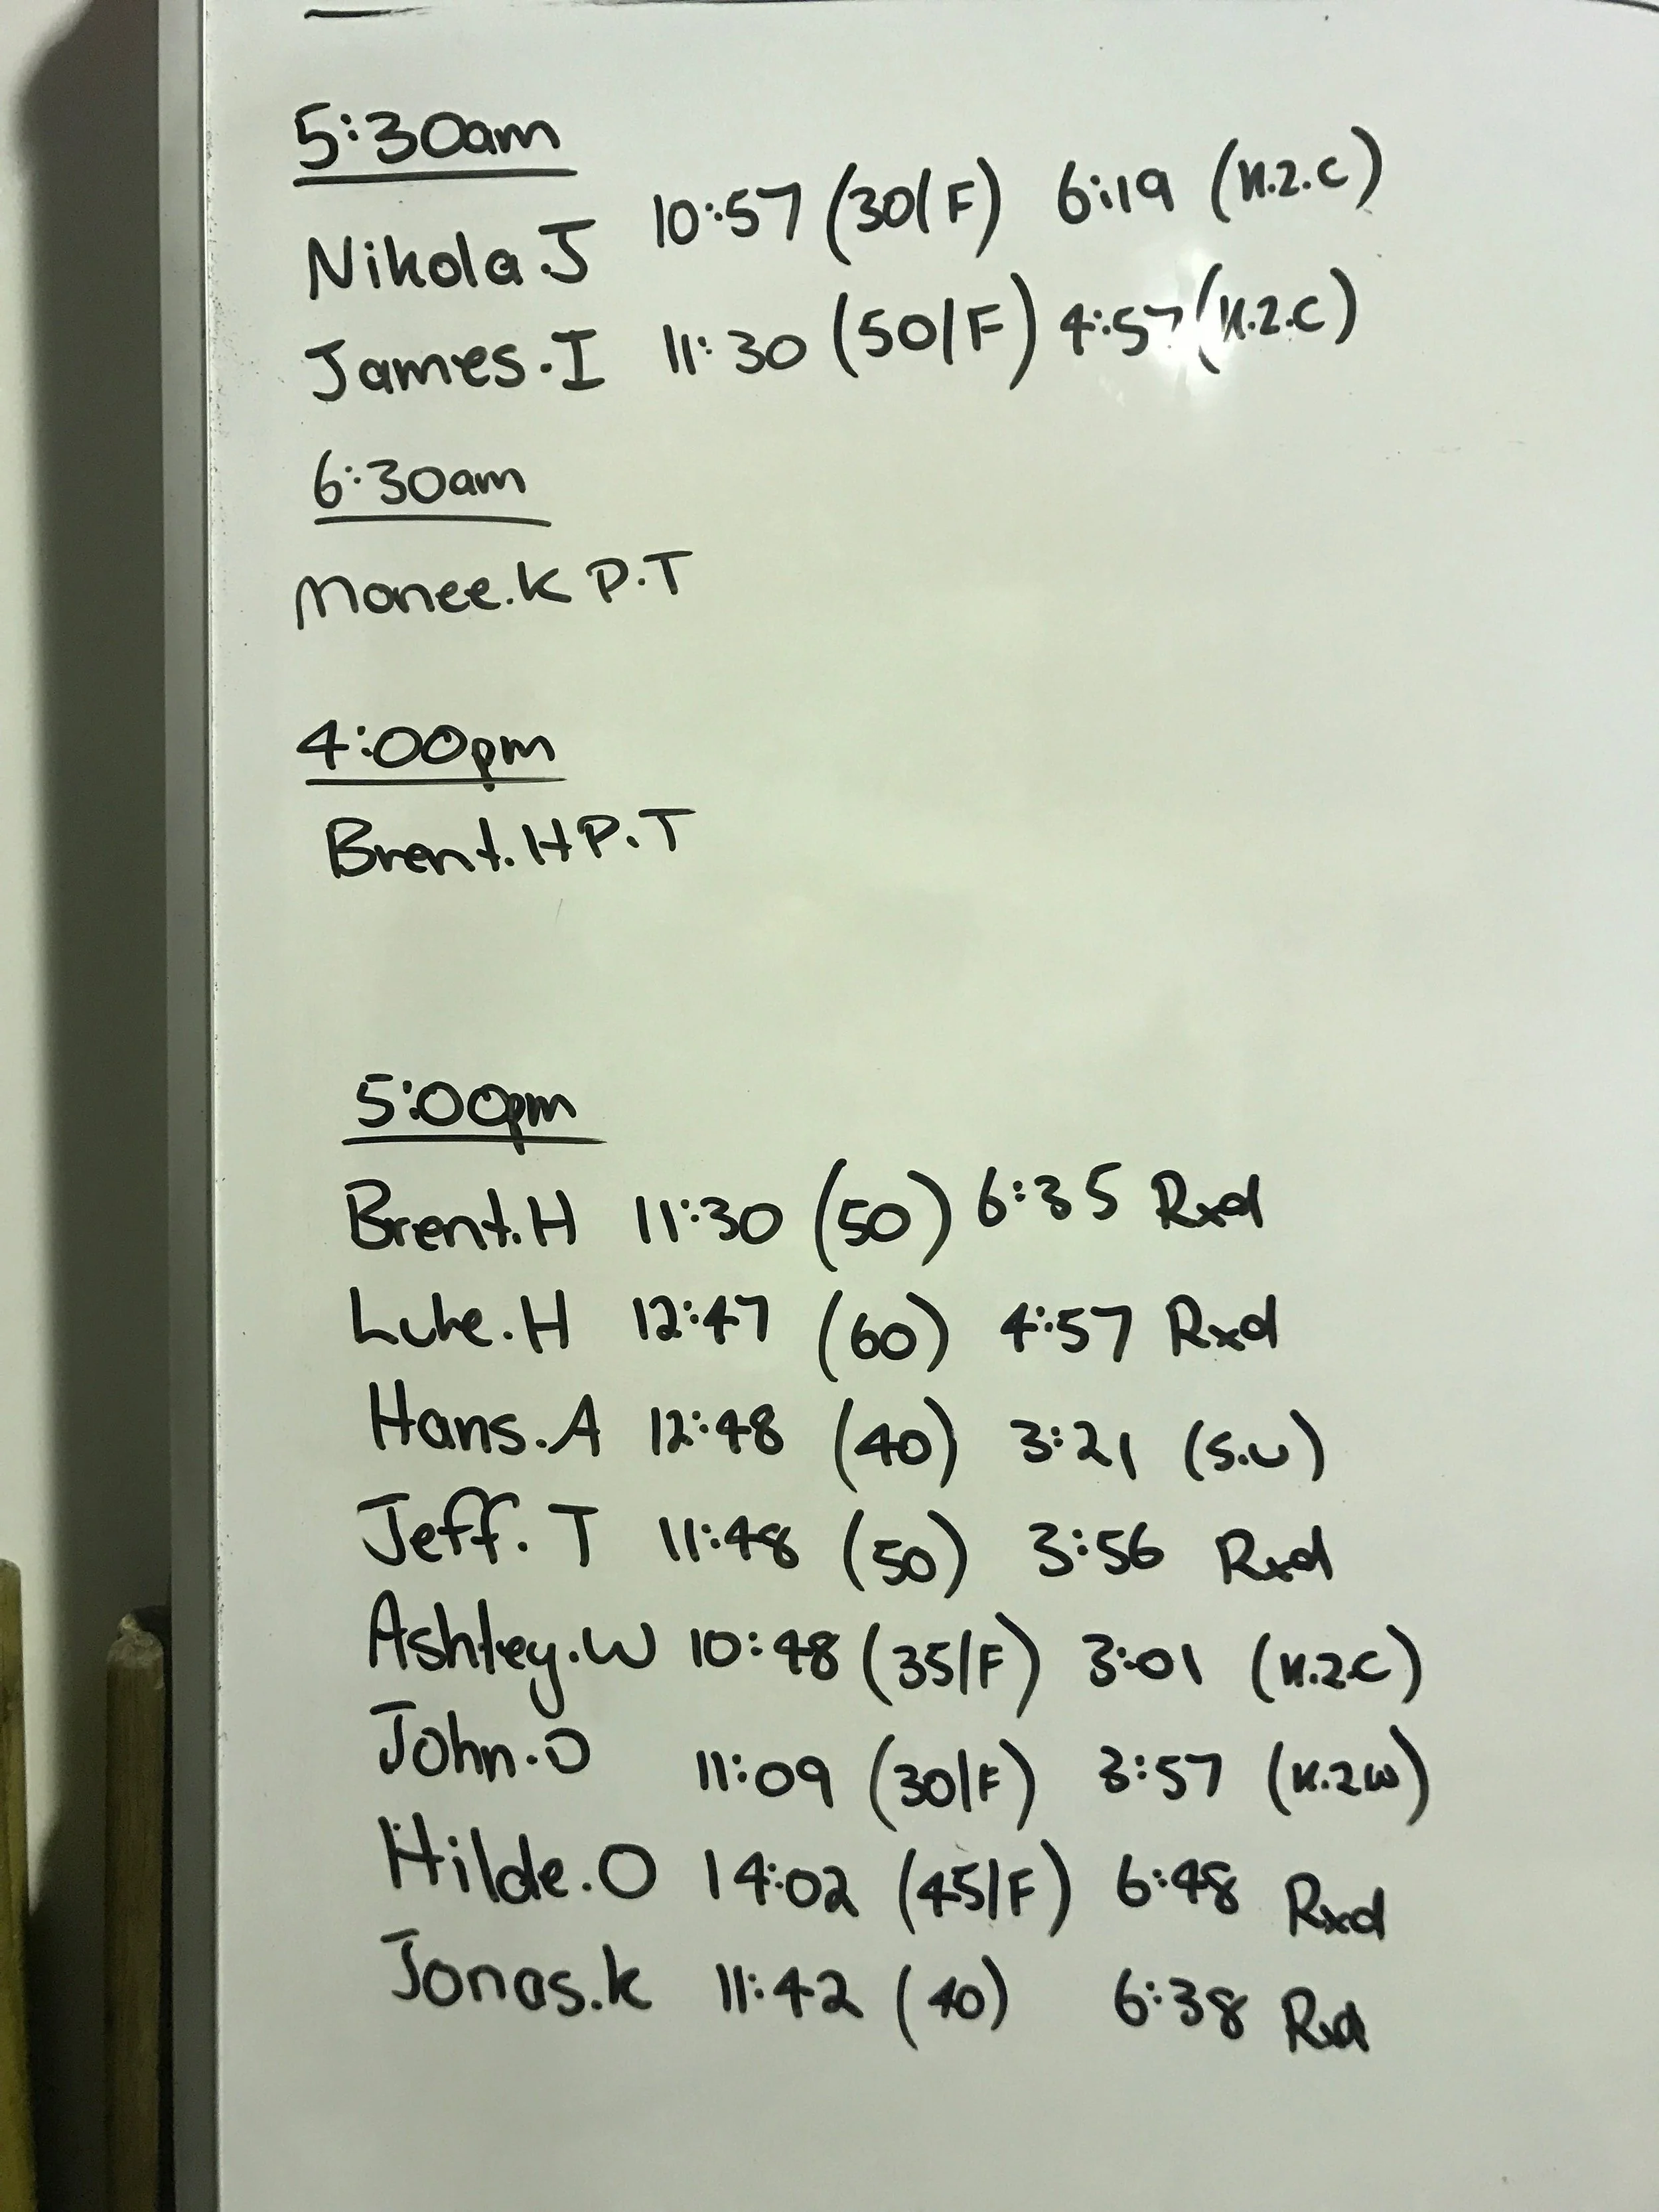 5:30am
Nikola.J 10:57 (30/F) 6:19 (K.2.C)
James.I 11:30 (50/F) 4:57 (K.2.C)
6:30am
Monee.K P.T
4:00pm
Brent.H P.T
5:00pm
Brent.H 11:30 (50) 6:35 Rxd
Luke.H 12:47 (60) 4:57 Rxd
Hans.A 12:48 (40) 3:21 (S.U)
Jeff.T 11:48 (50) 3:56 Rxd
Ashley.W 10:48 (35/F) 3:01 (K.2C)
John.O 11:09 (30/F) 3:57 (K.2W)
Hilde.O 14:02 (45/F) 6:48 Rxd
Jonas.K 11:42 (40) 6:38 Rxd